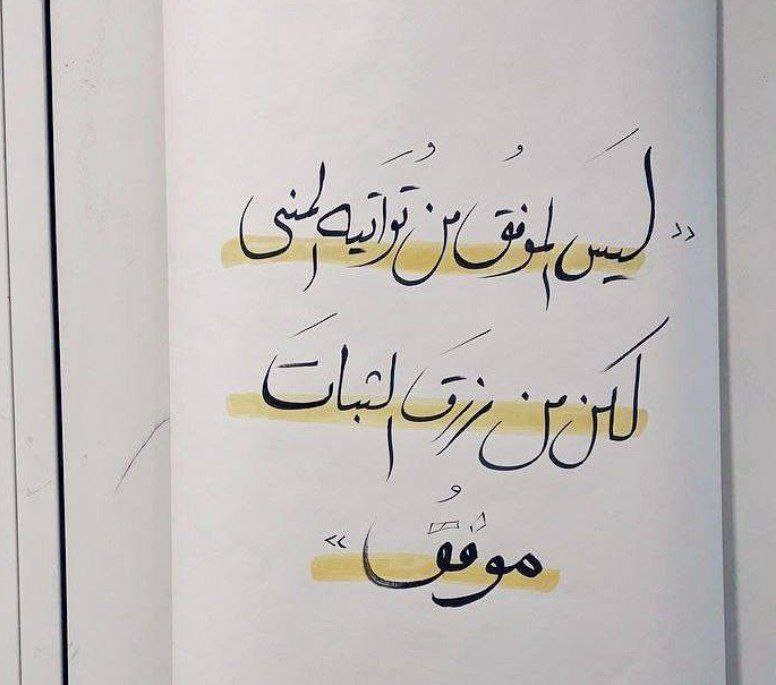 «ليسَ الموفقُ من تُوَاتيه المنى
لكن من رزقَ الثباتَ
موفقُ»